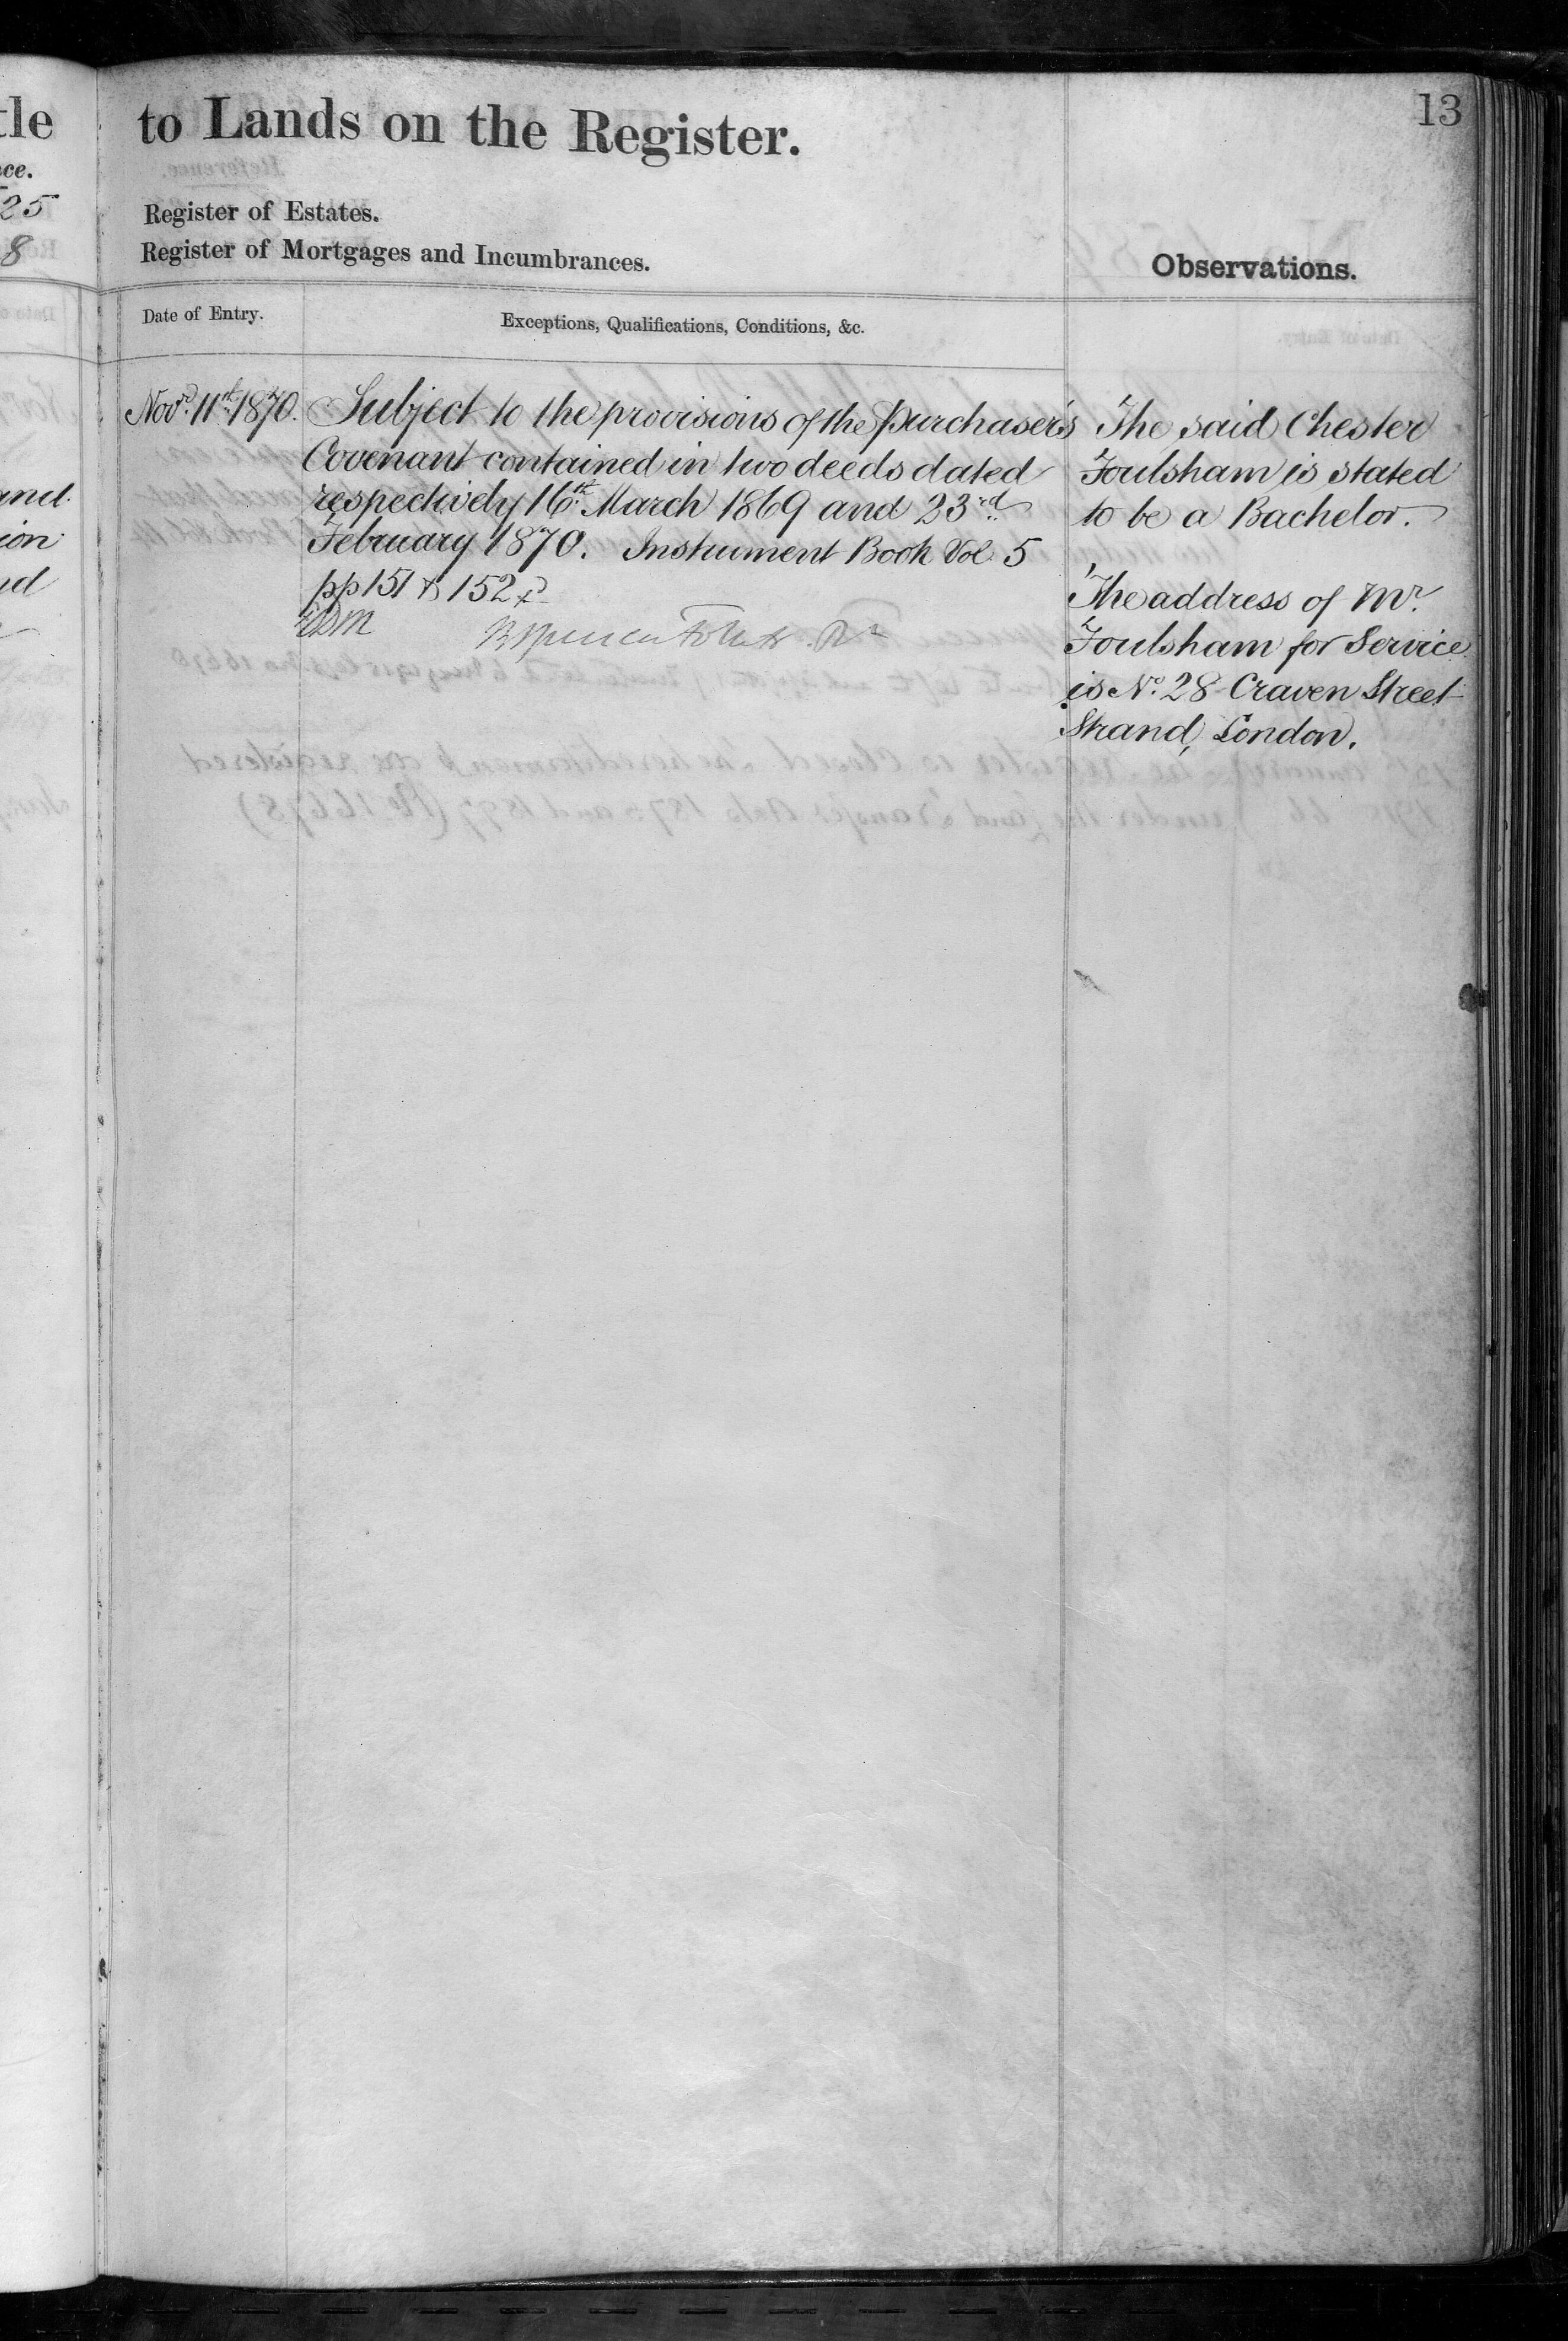 tle
to Lands on the Register.
13
ce.
25
8
Register of Estates.
Register of Mortgages and Incumbrances.
Observations.
Date of Entry.
Exceptions, Qualifications, Conditions, &c.
Novr. 11th 1870.
Subject to the provisions of the Purchaser's
Covenant contained in two deeds dated
respectively 16th March 1869 and 23rd
February 1870. Instrument Book Vol 5
pp 151 & 152
The said Chester
Foulsham is stated
to be a Bachelor.
The address of Mr.
Foulsham for Service
is No. 28 Craven Street
Strand, London.
and
ion